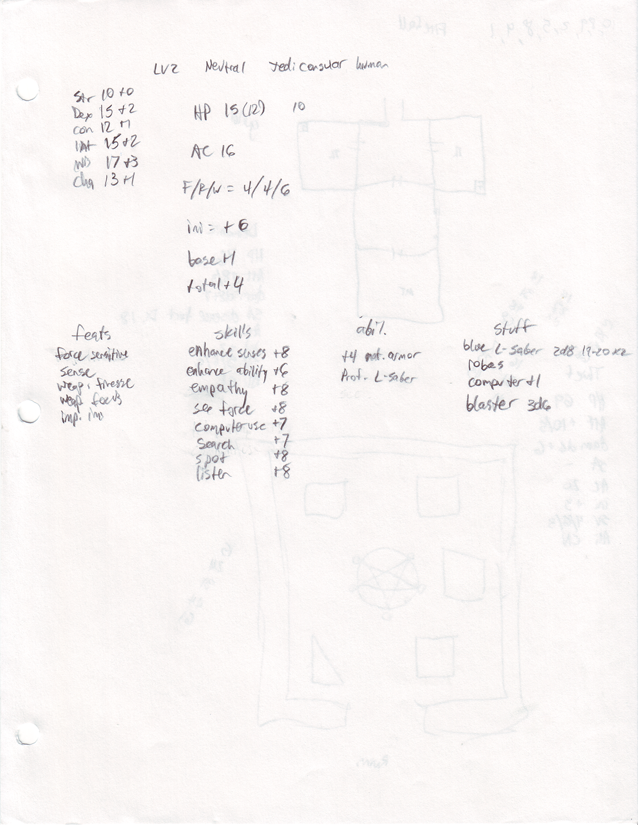 LV2 Neutral Jedi consular human
Str 10 +0
Dex 15 +2
con 12 +1
Int 15 +2
WD 17 +3
Cha 13 +1
HP 15 (12) 10
AC 16
F/R/W = 4/4/6
ini = +6
base +1
total +4
feats
force sensitive
sense
weap. finesse
weap focus
imp. ini
skills
enhance senses +8
enhance ability +6
empathy +8
see force +8
computer use +7
search +7
spot +8
listen +8
abil.
+4 nat. armor
Prof. L-saber
stuff
blue L-saber 2d8 19-20 x2
robes
computer +1
blaster 3d6